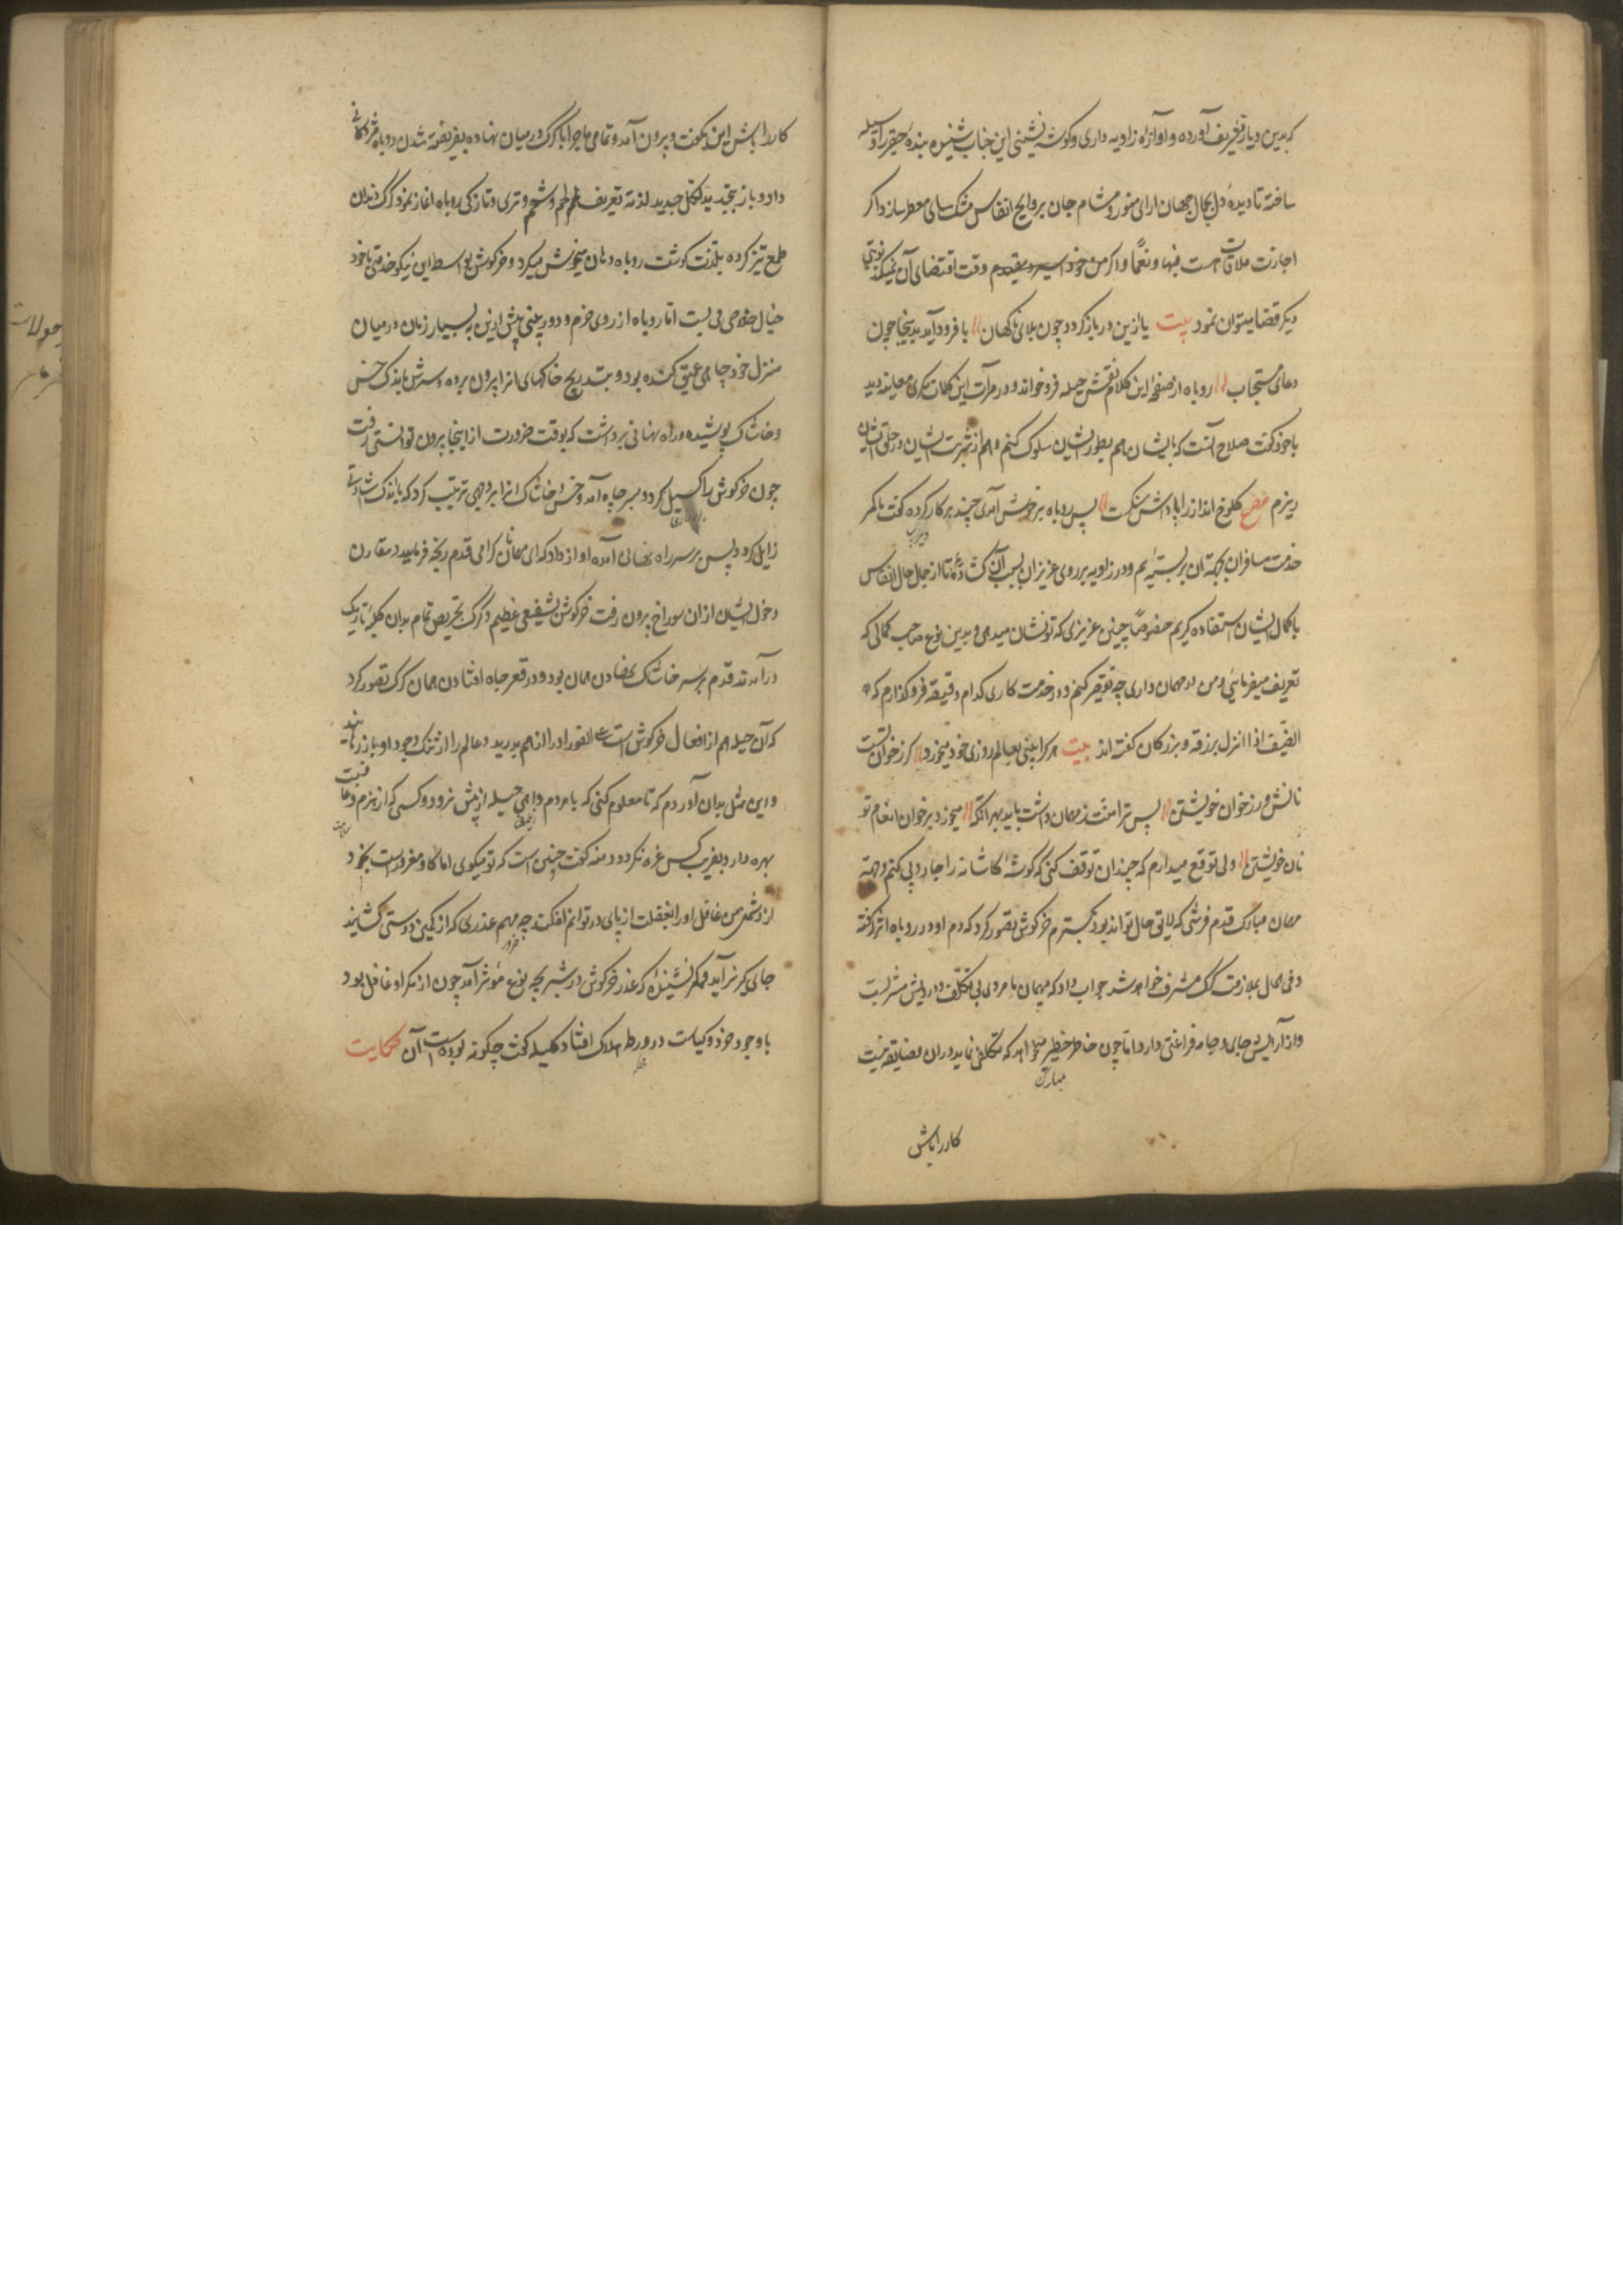 که بدین دیار تشریف آورده و آوازه زاویه داری و گوشه نشینی این جناب شنیده بنده حقیر را وسیله
ساخته تا دیده دل بجمال جهان ارای منور و مشام جان بروایح انفاس مشک سای معطر سازد اگر
اجازت ملاقات است فبها و نعما و اگر من خود وقت اقتضای آن نمیکند نوبتی
دیگر قضا میتوان نمود بیت یا ازین در باز گردد چون بلای ناگهان // یا فرود آید بدینجا چون
دعای مستجاب // روباه از صفحه این کلام نقش حیله فرو خواند و در مرآت این کلمات مکری معاینه دید
با خود گفت صلاح آنست که با ایشان هم بطور ایشان سلوک کنم و هم از شربت ایشان در حلق ایشان
ریزم مصرع کلوخ انداز را پاداش سنگست // پس روباه بر خوش آمدی چند بر کار کرده گفت ما کمر
خدمت مسافران بجهة آن بر بسته ایم و در زاویه بر روی عزیزان بسبب آن گشاده تا از جمال حال انفاس
با کمال ایشان استفاده گیریم خصوصا چنین عزیزی که تو نشان میدهی و بدین نوع صاحب کمالی که
تعریف میفرمائی و من در مهمان داری چه تقصیر کنم و در خدمت کاری کدام دقیقه فرو گذارم که
الضیف اذا نزل نزل برزقه و بزرگان گفته اند بیت هر کرا بینی بعالم روزی خود میخورد // گر ز خوان تست
نانش ور ز خوان خویشتن // پس ترا منت ز مهمان داشت باید بهر آنکه // میخورد بر خوان انعام تو
نان خویشتن // ولی توقع میدارم که چندان توقف کنی که گوشه کاشانه را جاروبی کنم و بجهة
مهمان مبارک قدم فرشی که لایق حال تواند بود بگسترم خرگوش تصور کرد که دم او در روباه اثر گرفته
و فی الحال بملازمت گرگ مشرف خواهد شد جواب داد که مهمان ما مردی بی تکلف و درویش مشربست
و از آرایش جای و جامه فراغتی دارد اما چون خاطر خطیر میخواهد که تکلفی نماید در ان مضایقه نیست
مبارک
کار را باش
کار را باش این بگفت و بیرون آمد و تمامی ماجرا با گرگ در میان نهاده بفریفته شدن روباه مژدگانی
داد و باز بتجدید لکل جدید لذة تعریف لحم و شحم و تری و تازگی روباه اغاز نمود گرگ دندان
طمع تیز کرده بلذت گوشت روباه دهان میخوش میکرد و خرگوش بواسطه این نیکو خدمتی با خود
خیال خلاصی می بست اما روباه از روی حزم و دوربینی پیش ازین به بسیار زمان در میان
منزل خود چاهی عمیق کنده بود و بتدریج خاکهای انرا بیرون برده و سرش باندک خس
و خاشاک پوشیده و راه نهانی برداشت که بوقت ضرورت از اینجا بیرون توانستی رفت
چون خرگوش را گسیل کرد و بسر چاه آمد و خس و خاشاک انرا بروجهی ترتیب کرد که باندک اشارتی
زایل گردد پس بر سر راه نهانی آمده اواز داد که ای مهمانان گرامی قدم رنجه فرمایید و مقارن
دخول ایشان ازان سوراخ بیرون رفت خرگوش بشعفی عظیم و گرگ بحرص تمام بدان کلبه تاریک
درآمدند قدم بر سر خاشاک نهادن همان بود و در قعر چاه افتادن همان گرگ تصور کرد
که آن حیله هم از افعال خرگوش است علی الفور او را از هم بدرید و عالم را از ننگ وجود او باز رهانید
و این مثل بدان آوردم که تا معلوم کنی که با مردم دانا حیله از پیش نرود و کسی که از حزم و عاقبت
بهره دارد بفریب کس غره نگردد دمنه گفت چنین است که تو میگوی اما گاو مغرورست بخود و
از دشمنی من غافل او را بغفلت از پای در توانم افگند چه سهم عذری که از کمین دوستی گشایند
جای گیرتر آید و مگر نشنیده که عذر خرگوش در شیر بچه نوع مؤثر آمد چون از مکر او غافل بود
با وجود خرد و کیاست در ورطه هلاک افتاد کلیله گفت چگونه بوده است آن حکایت